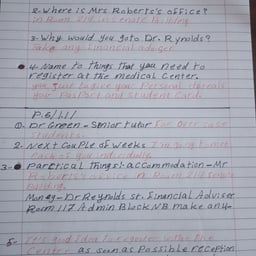 2- Where is Mrs Roberts's office?
in Room 214 in Senate Building
3- Why would you go to Dr. Rynolds?
Take any financial advice
4- Name to things that you need to
register at the medical center.
you have to give your Personal details
your PassPort and Student Card.
P.6/1.1/
1- Dr Green - Senior tutor for Over seas
Students.
2- Next Couple of weeks I'm going to meet
each of you individually.
3- Parctical Things:- accommodation - Mr
Roberts's office in Room 214 Senate
Building.
Money - Dr Reynolds St. Financial Adviser
Room 117 Admin Block NB make any
5- It's good Idea to register with the
Center as soon as Possible reception